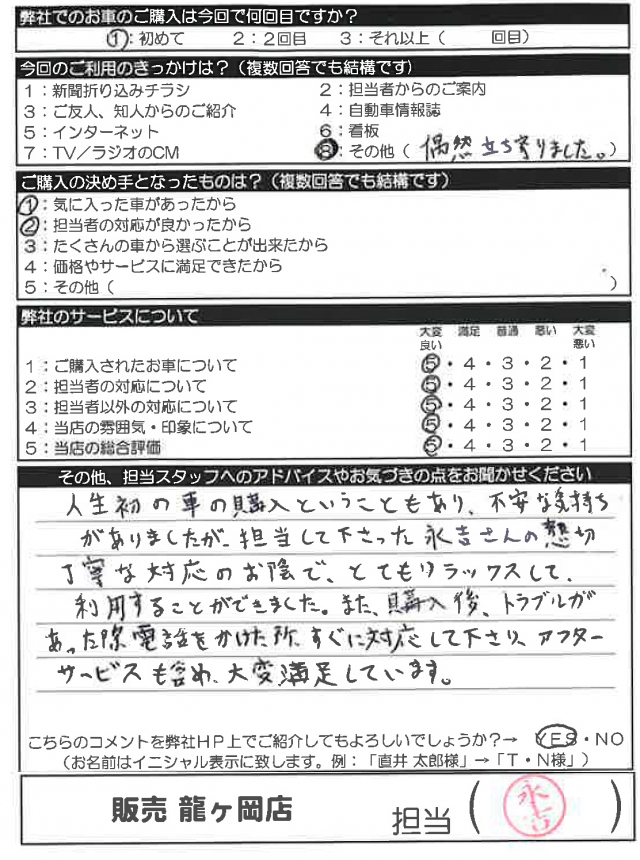 弊社でのお車のご購入は今回で何回目ですか?
1:初めて 2:2回目 3:それ以上( 回目)
今回のご利用のきっかけは?(複数回答でも結構です)
1:新聞折り込みチラシ 2:担当者からのご案内
3:ご友人、知人からのご紹介 4:自動車情報誌
5:インターネット 6:看板
7:TV/ラジオのCM 8:その他(偶然立ち寄りました。)
ご購入の決め手となったものは?(複数回答でも結構です)
1:気に入った車があったから
2:担当者の対応が良かったから
3:たくさんの車から選ぶことが出来たから
4:価格やサービスに満足できたから
5:その他( )
弊社のサービスについて
大変良い 満足 普通 悪い 大変悪い
1:ご購入されたお車について 5・4・3・2・1
2:担当者の対応について 5・4・3・2・1
3:担当者以外の対応について 5・4・3・2・1
4:当店の雰囲気・印象について 5・4・3・2・1
5:当店の総合評価 5・4・3・2・1
その他、担当スタッフへのアドバイスやお気づきの点をお聞かせください
人生初の車の購入ということもあり、不安な気持ち
がありましたが、担当して下さった永吉さんの懇切
丁寧な対応のお陰で、とてもリラックスして、
利用することができました。また、購入後、トラブルが
あった際電話をかけた所、すぐに対応して下さり、アフター
サービスも含め、大変満足しています。
こちらのコメントを弊社HP上でご紹介してもよろしいでしょうか?→ YES・NO
(お名前はイニシャル表示に致します。例:「直井 太郎様」→「T・N様」)
販売 龍ヶ岡店 担当(永吉)